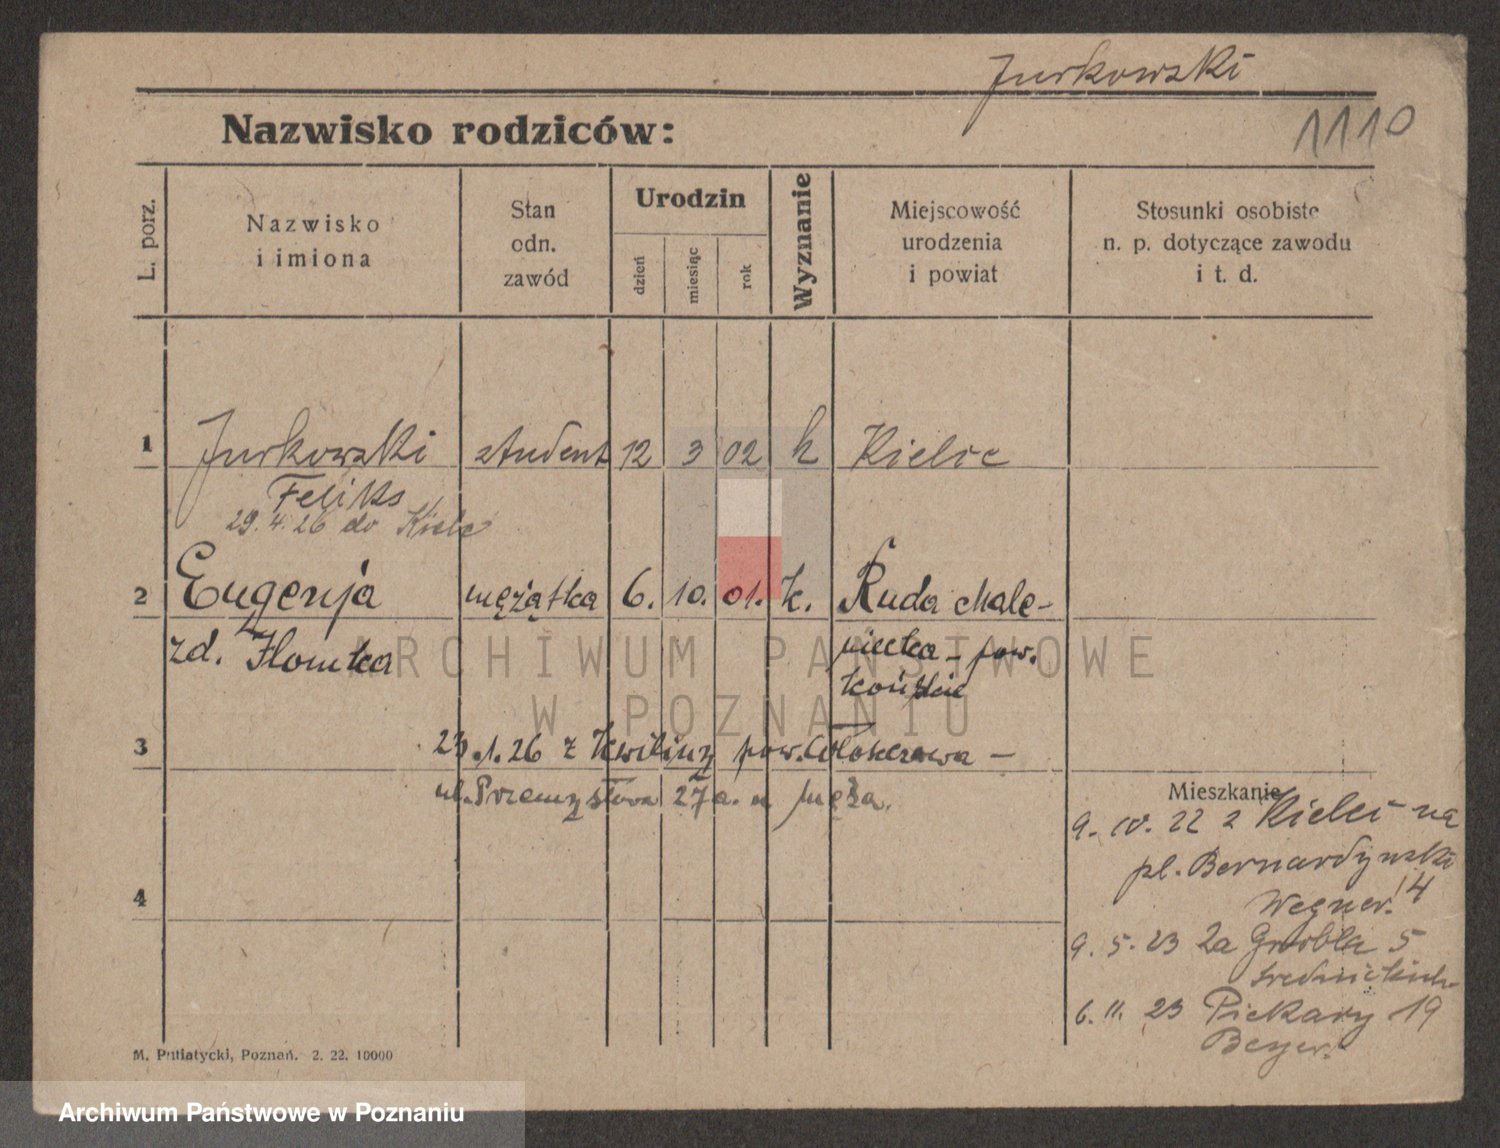 Jurkowski
1110
Nazwisko rodziców:
L. porz.
Nazwisko
i imiona
Stan
odn.
zawód
Urodzin
dzień
miesiąc
rok
Wyznanie
Miejscowość
urodzenia
i powiat
Stosunki osobiste
n. p. dotyczące zawodu
i t. d.
1 Jurkowski student 12 3 02 k Kielce
Feliks
29. 4. 26 do Kielc
2 Eugenja mężatka 6. 10. 01. k. Ruda Male-
zd. Słomka
niecka - pow.
końskie
3 23.1.26 z pow. Włoszczowa -
ul. Przemysłowa 27a. u męża.
4
Mieszkanie
9. IV. 22 z Kielc na
pl. Bernardyński
Wegner. 14
9. 5. 23 Za Groblą 5
6. 11. 23 Piekary 19
Beyer.
M. Putiatycki, Poznań. 2. 22. 10000
ARCHIWUM PAŃSTWOWE
W POZNANIU
Archiwum Państwowe w Poznaniu